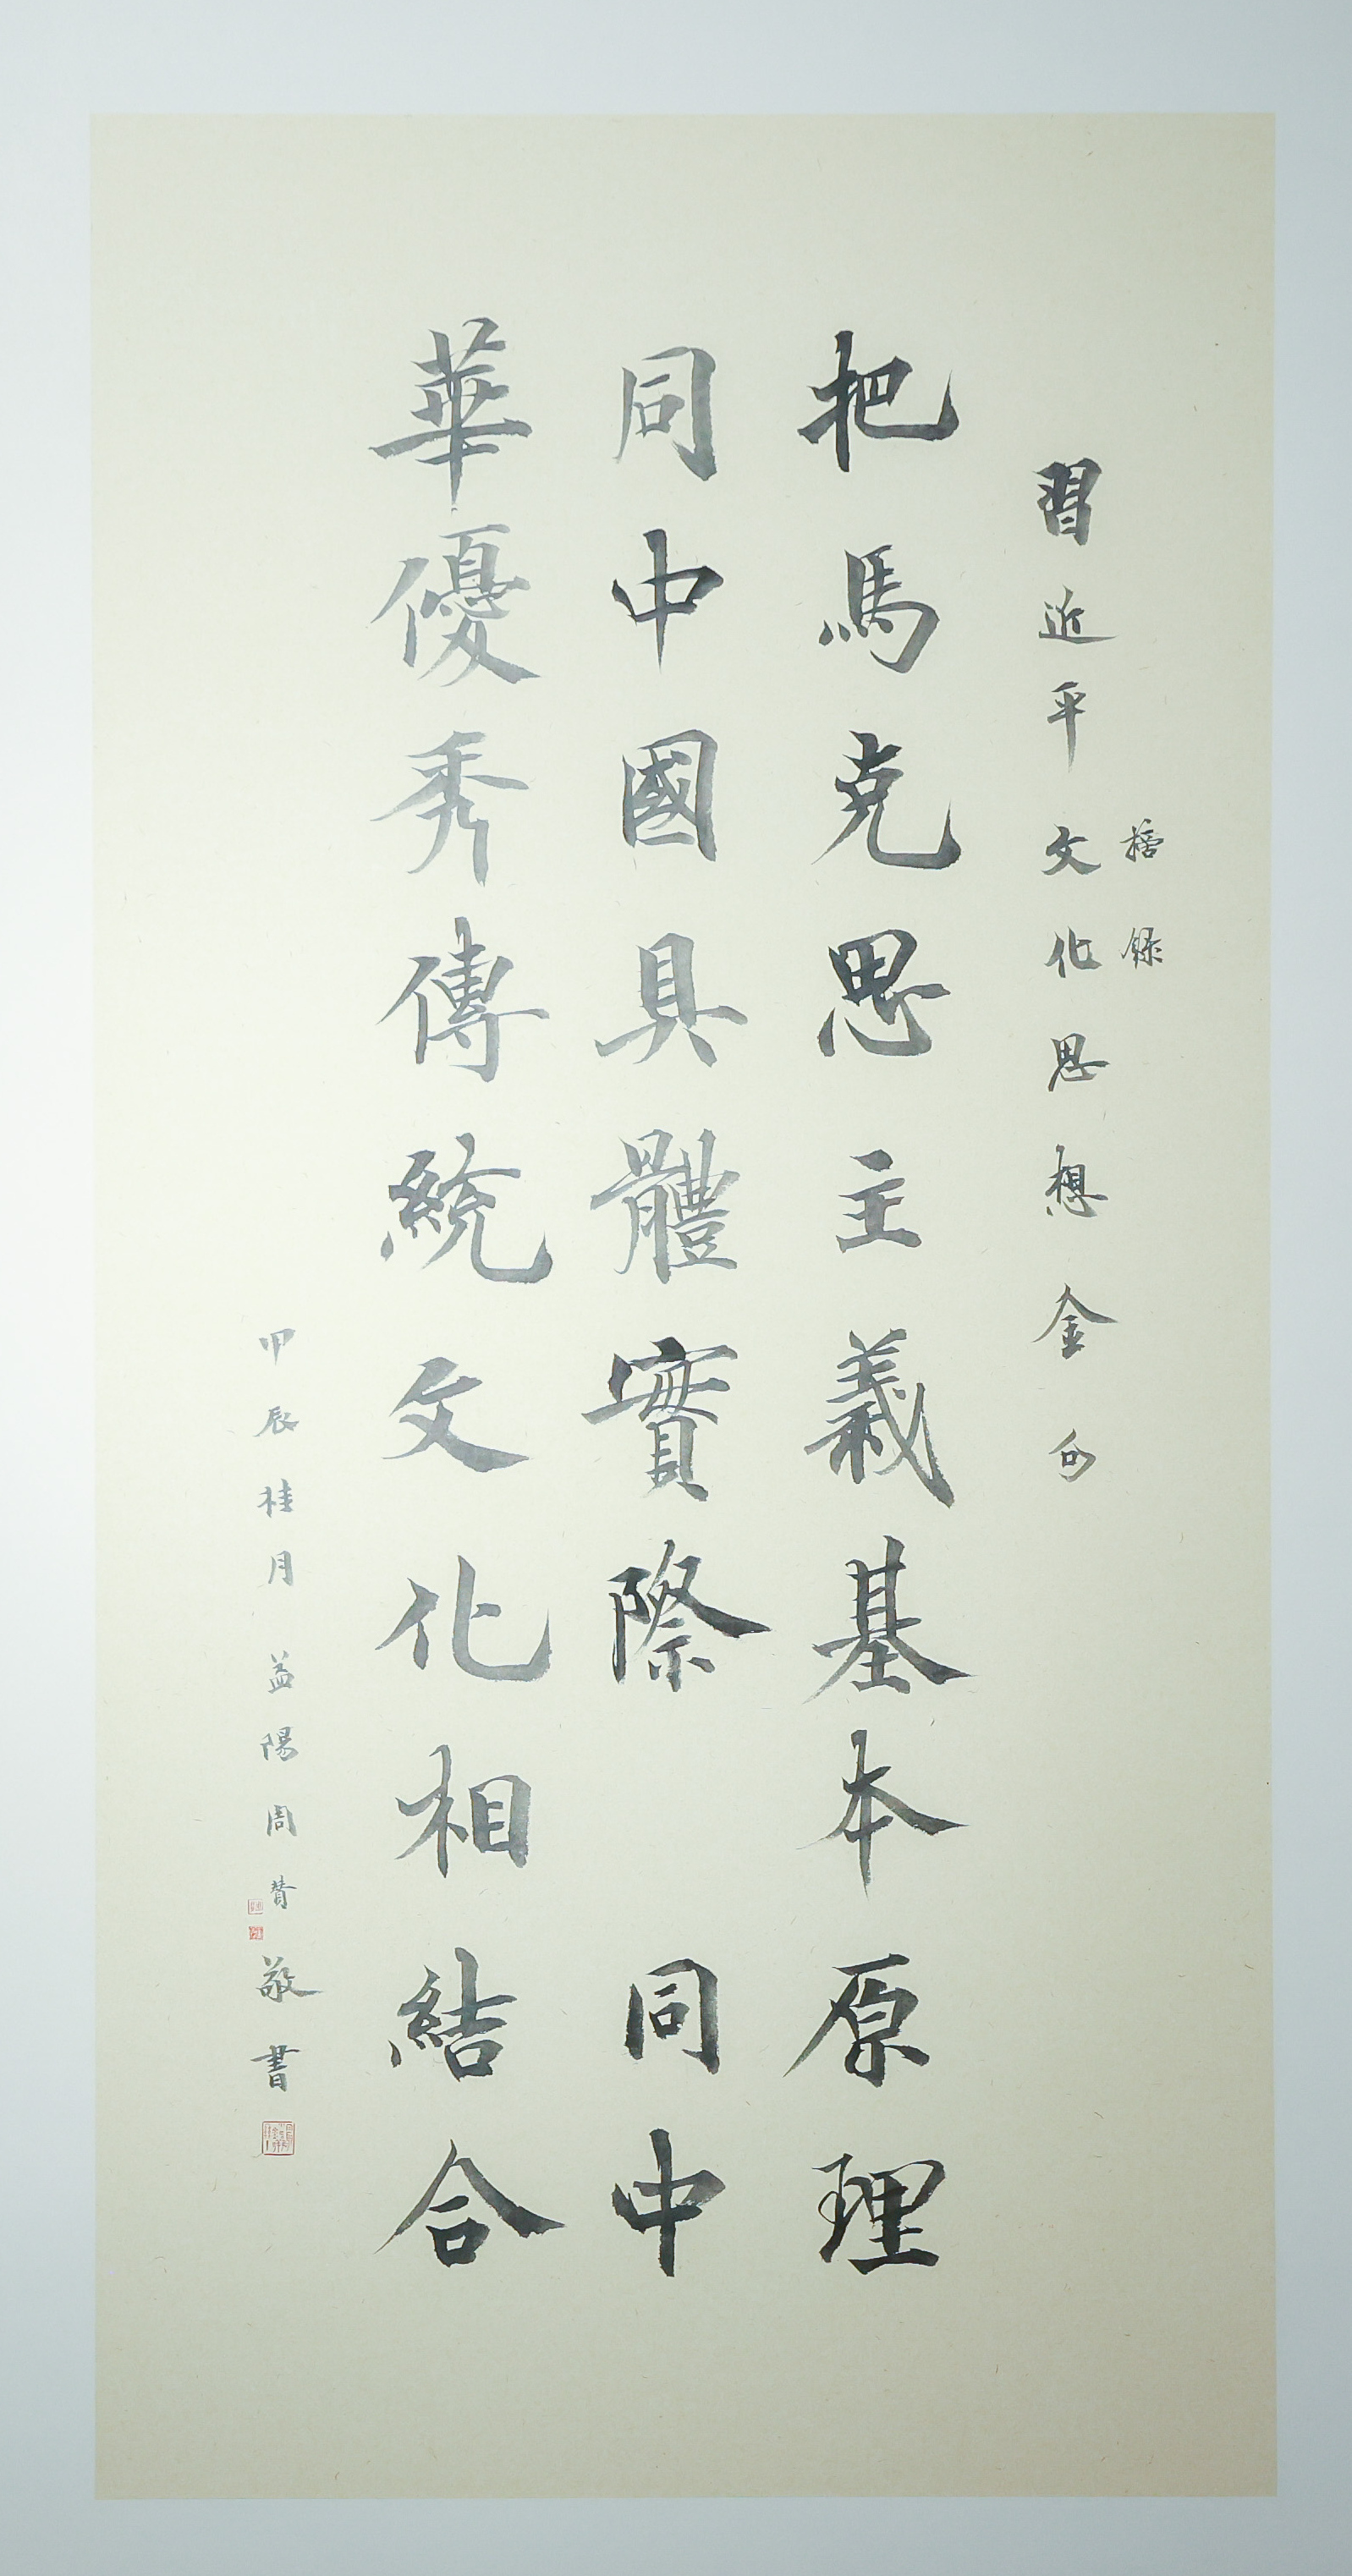 摘錄
習近平文化思想金句
把馬克思主義基本原理
同中國具體實際 同中
華優秀傳統文化相結合
甲辰桂月 益陽周贊敬書